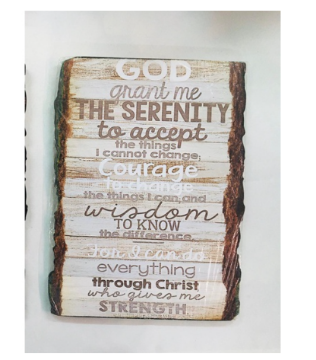 GOD
grant me
THE SERENITY
to accept
the things
I cannot change,
Courage
to change
the things I can, and
wisdom
TO KNOW
the difference.
You & I can do
everything
through Christ
who gives me
STRENGTH